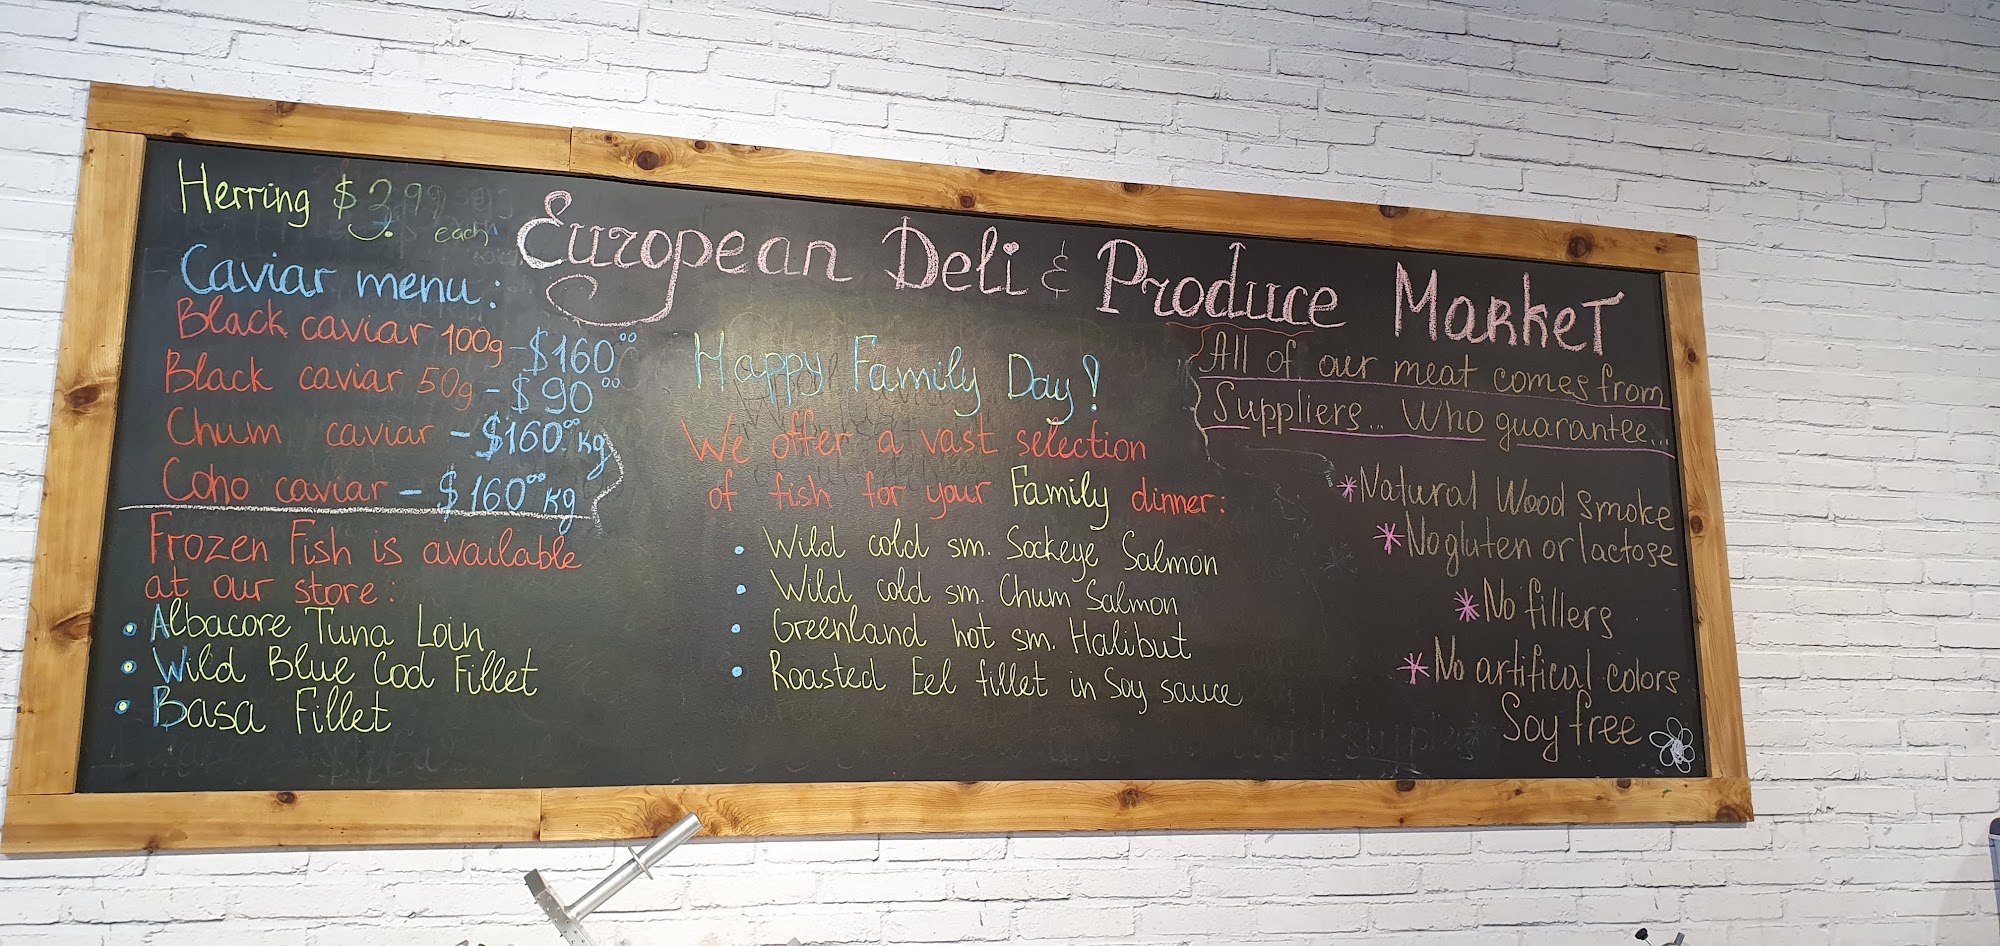 European Deli & Produce Market
Herring $3.99
each
Caviar menu:
Black caviar 100g - $160⁰⁰
Black caviar 50g - $90⁰⁰
Chum caviar - $160⁰⁰ kg
Coho caviar - $160⁰⁰ kg
Frozen Fish is available
at our store:
• Albacore Tuna Loin
• Wild Blue Cod Fillet
• Basa Fillet
Happy Family Day!
We offer a vast selection
of fish for your Family dinner:
• Wild cold sm. Sockeye Salmon
• Wild cold sm. Chum Salmon
• Greenland hot sm. Halibut
• Roasted Eel fillet in Soy sauce
All of our meat comes from
Suppliers... Who guarantee...
* Natural Wood smoke
* No gluten or lactose
* No fillers
* No artifical colors
Soy free